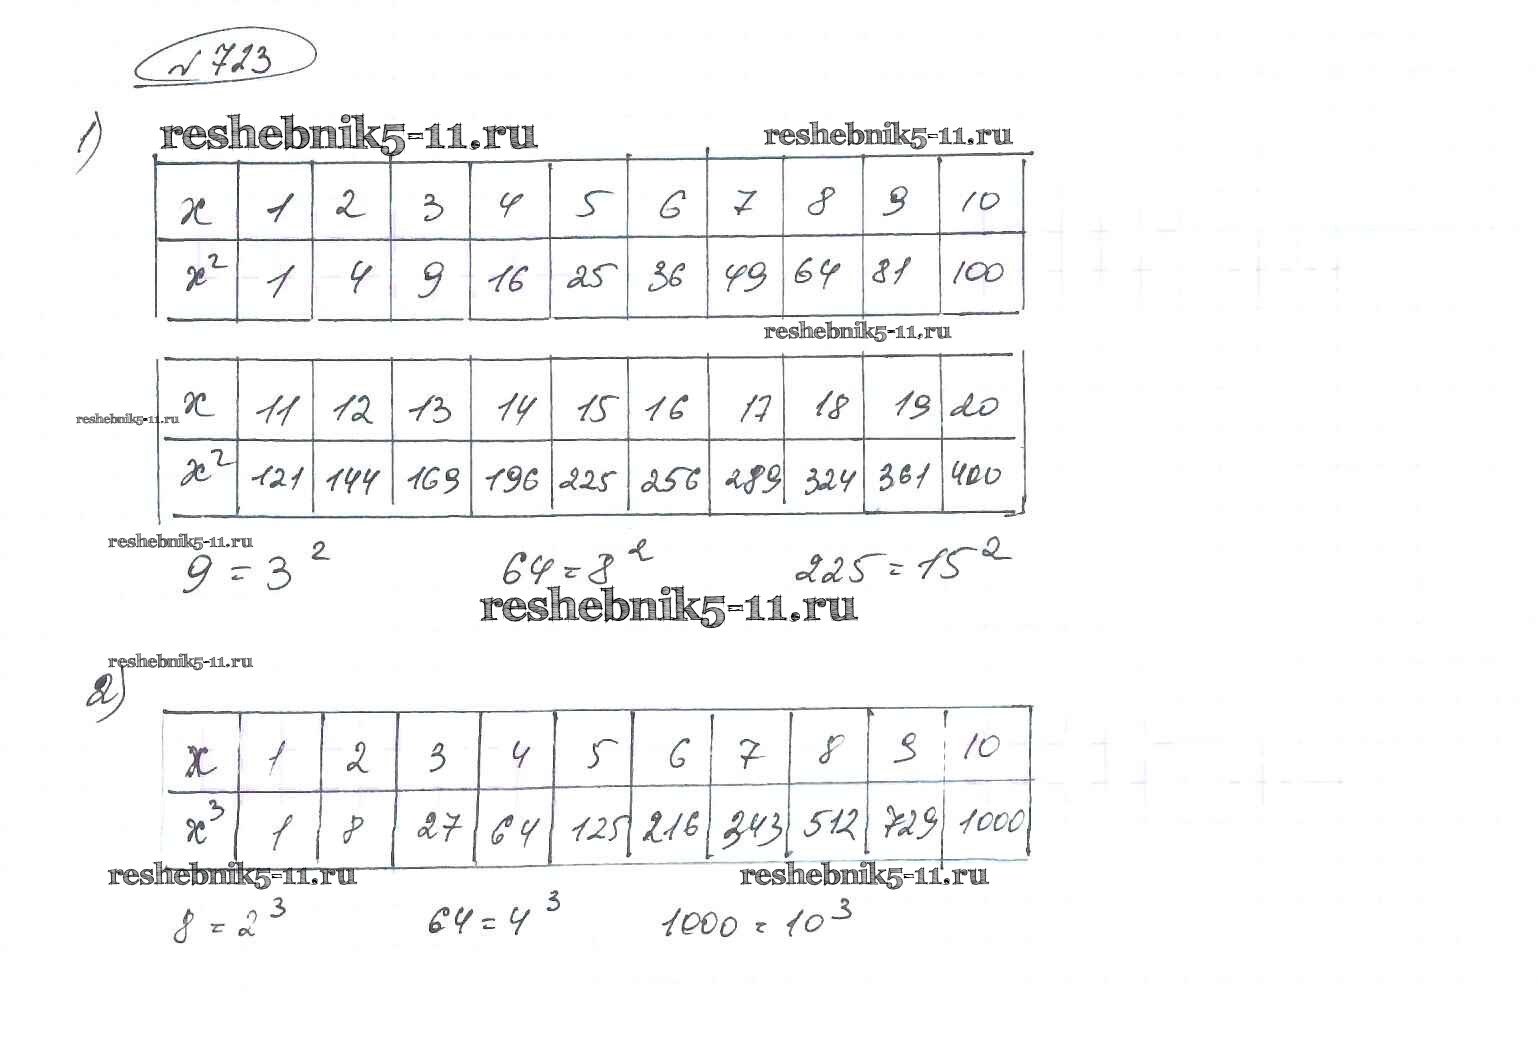 № 723
1)
reshebnik5-11.ru reshebnik5-11.ru
x 1 2 3 4 5 6 7 8 9 10
x² 1 4 9 16 25 36 49 64 81 100
reshebnik5-11.ru
x 11 12 13 14 15 16 17 18 19 20
reshebnik5-11.ru
x² 121 144 169 196 225 256 289 324 361 400
reshebnik5-11.ru
9 = 3² 64 = 8² 225 = 15²
reshebnik5-11.ru
reshebnik5-11.ru
2)
x 1 2 3 4 5 6 7 8 9 10
x³ 1 8 27 64 125 216 343 512 729 1000
reshebnik5-11.ru reshebnik5-11.ru
8 = 2³ 64 = 4³ 1000 = 10³